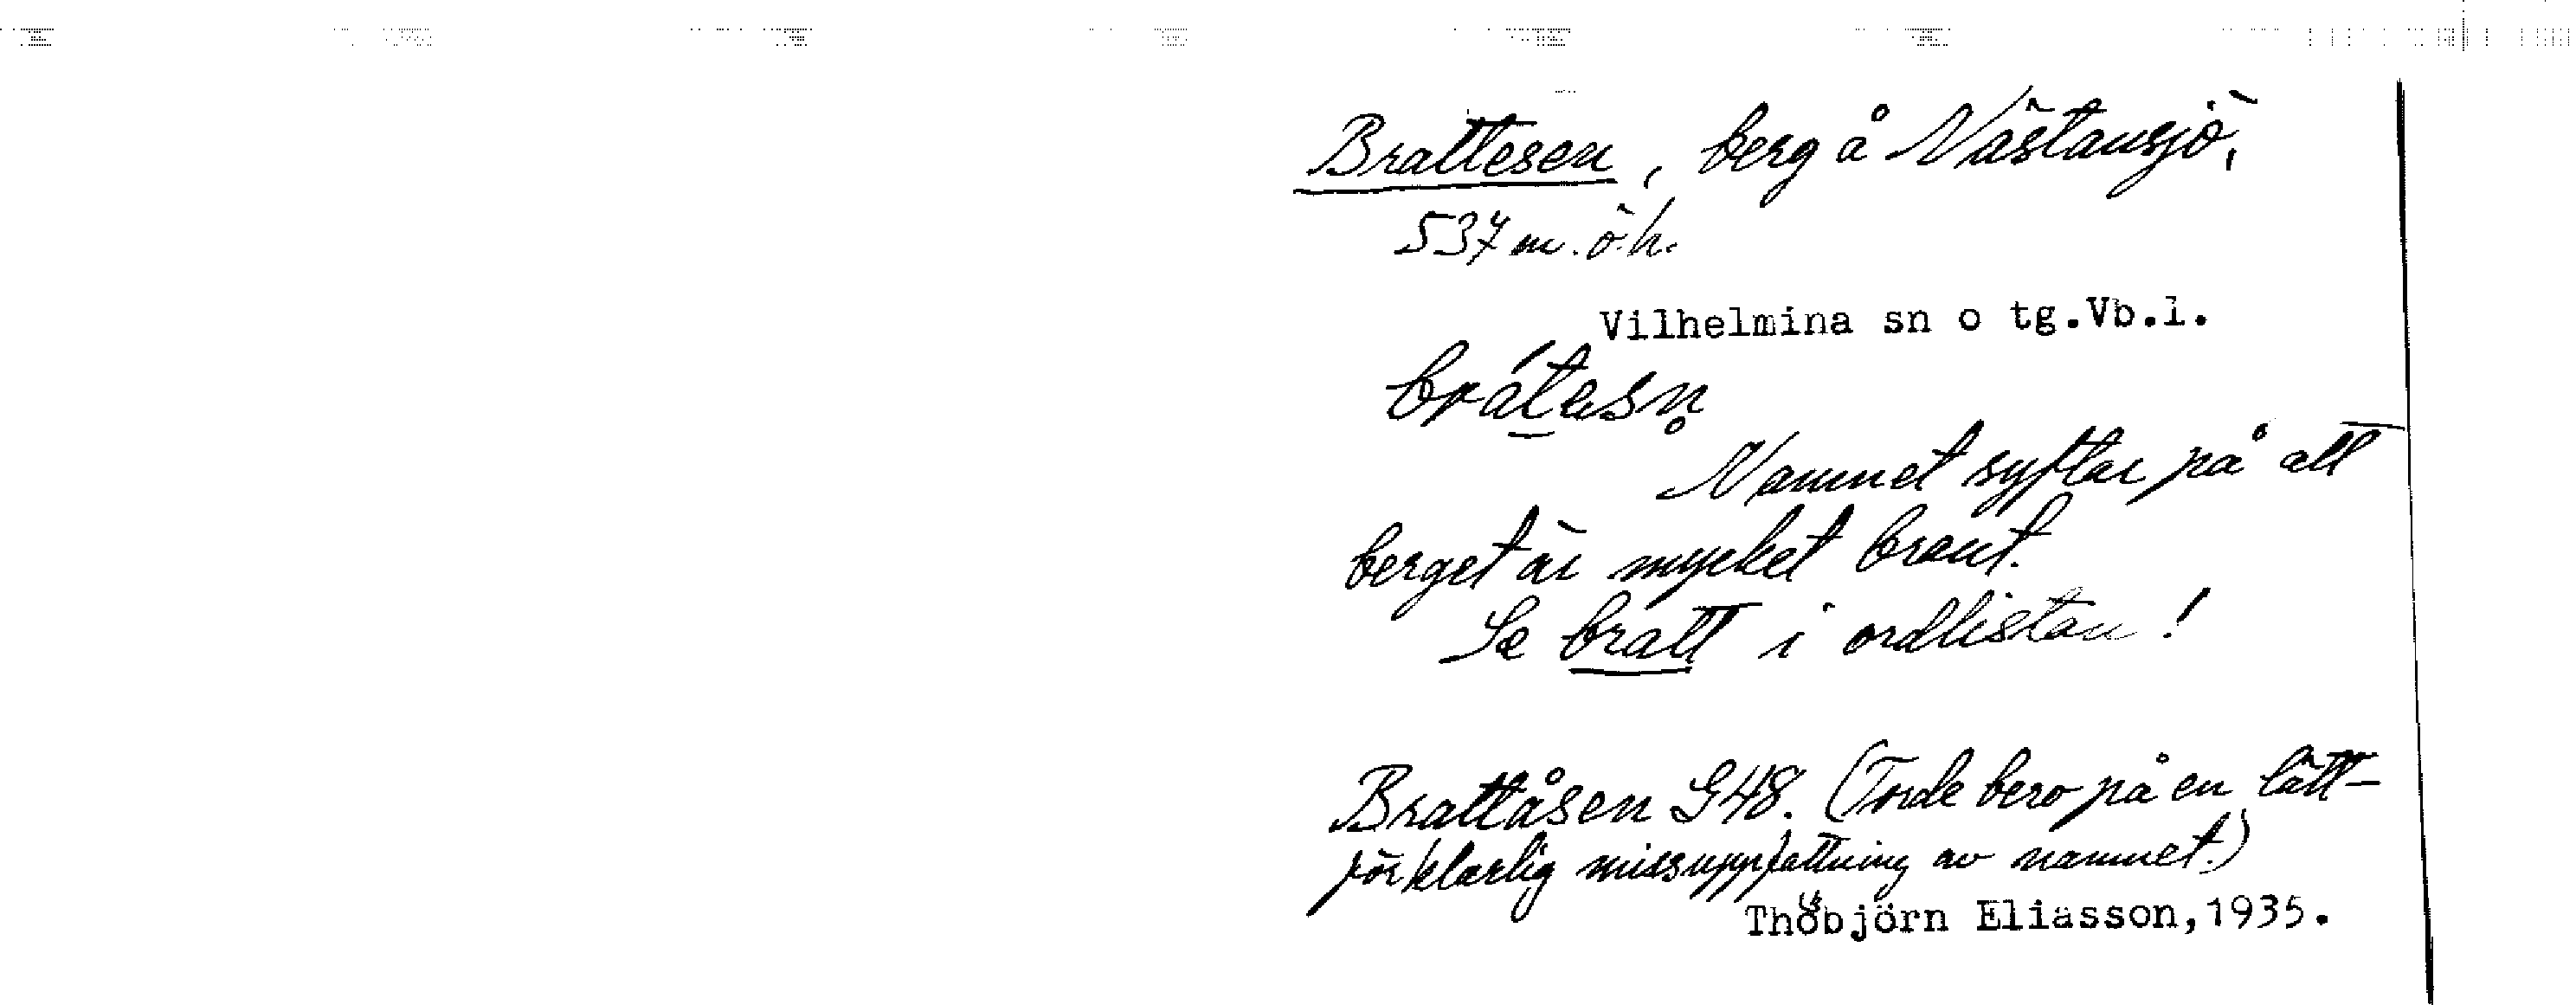 Brattesen, berg å Nästansjö,
537 m. ö.h.
Vilhelmina sn o tg.Vb.l.
brátesn̥
Namnet syftar på att
berget är mycket brant.
Se bratt i ordlistan!
Brattåsen G48. (Torde bero på en lätt-
förklarlig missuppfattning av namnet.)
Thobjörn Eliasson,1935.